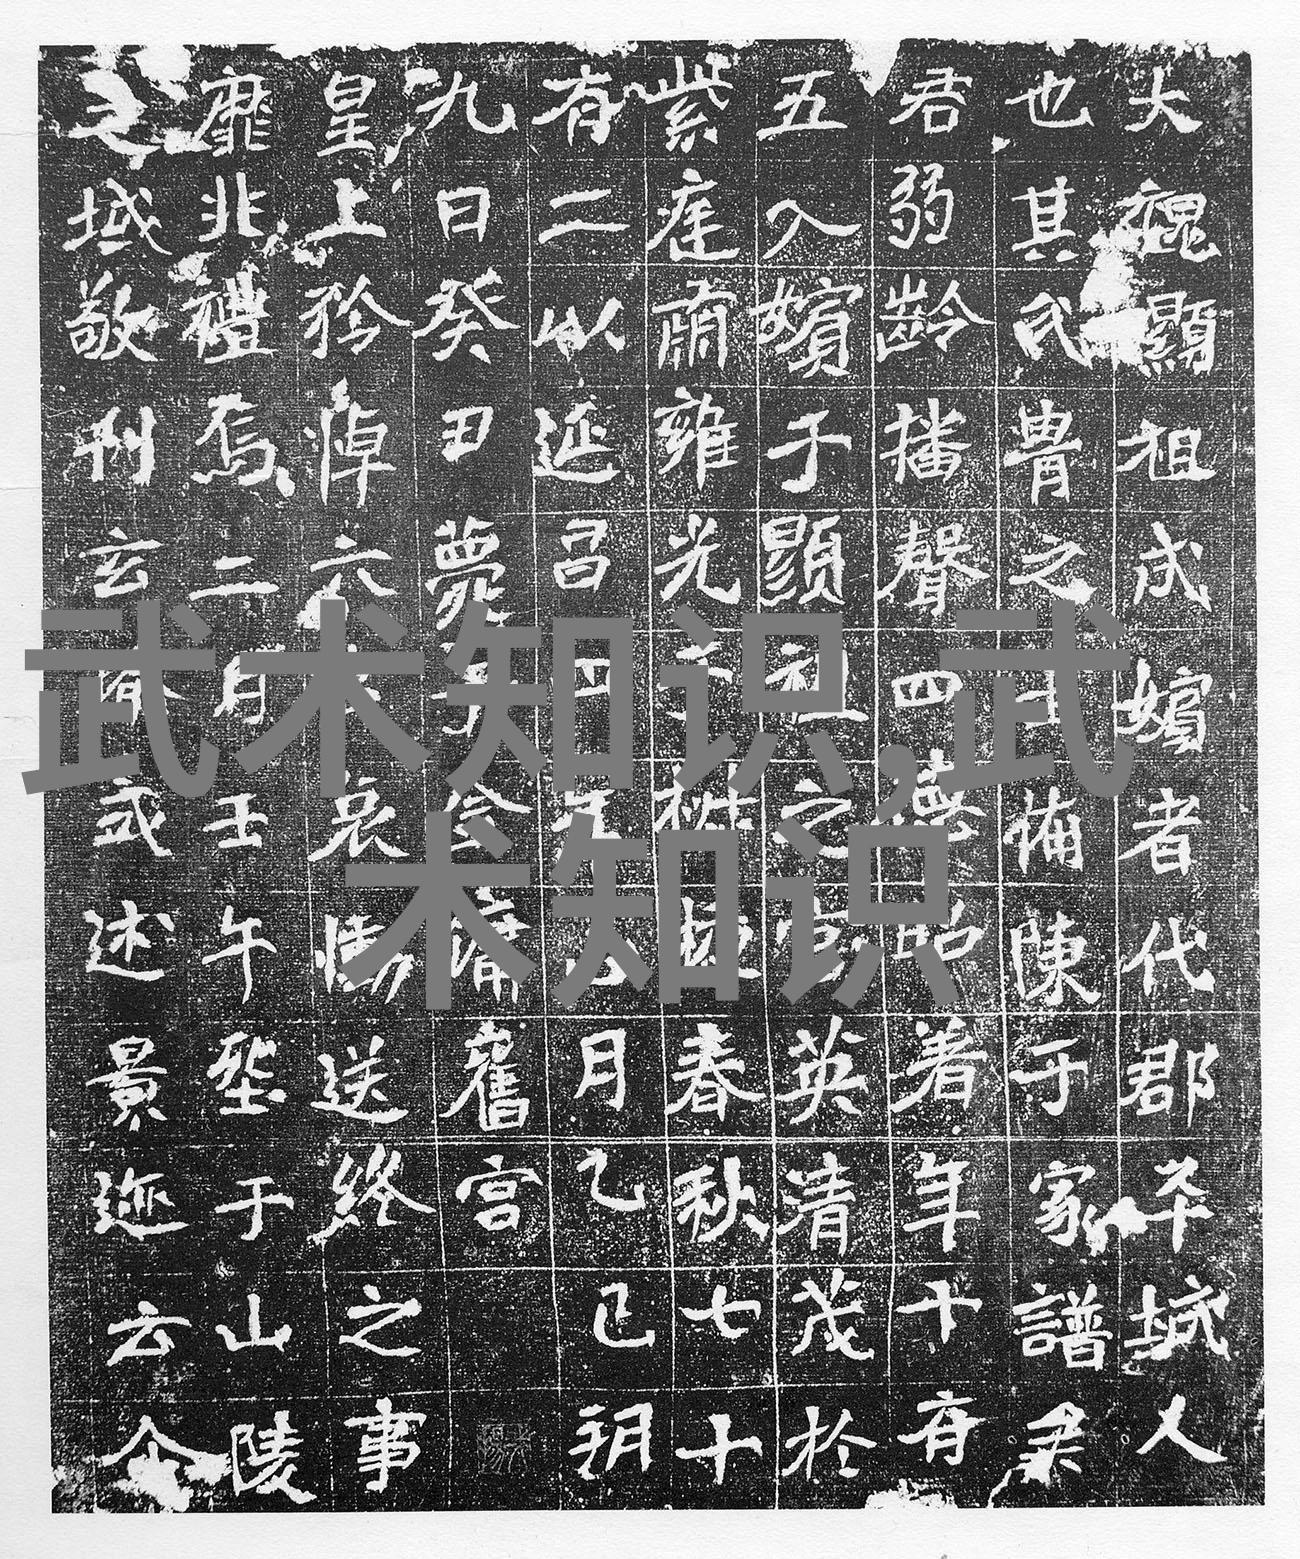 大魏顯祖成嬪者代郡平城人
也其氏胄之備陳于家譜柔
君弱齡播聲四德昭著年十有
五入嬪于顯祖之宮英清茂於
紫庭肅雍光于椒掖春秋七十
有二以延昌四年月乙巳朔
九日癸丑薨于金墉舊宮
皇上矜悼六哀慟送終之事
靡非禮焉二月壬午塟于山陵
之域敬刊玄式述景迹云尒
武术知识,武
术知识